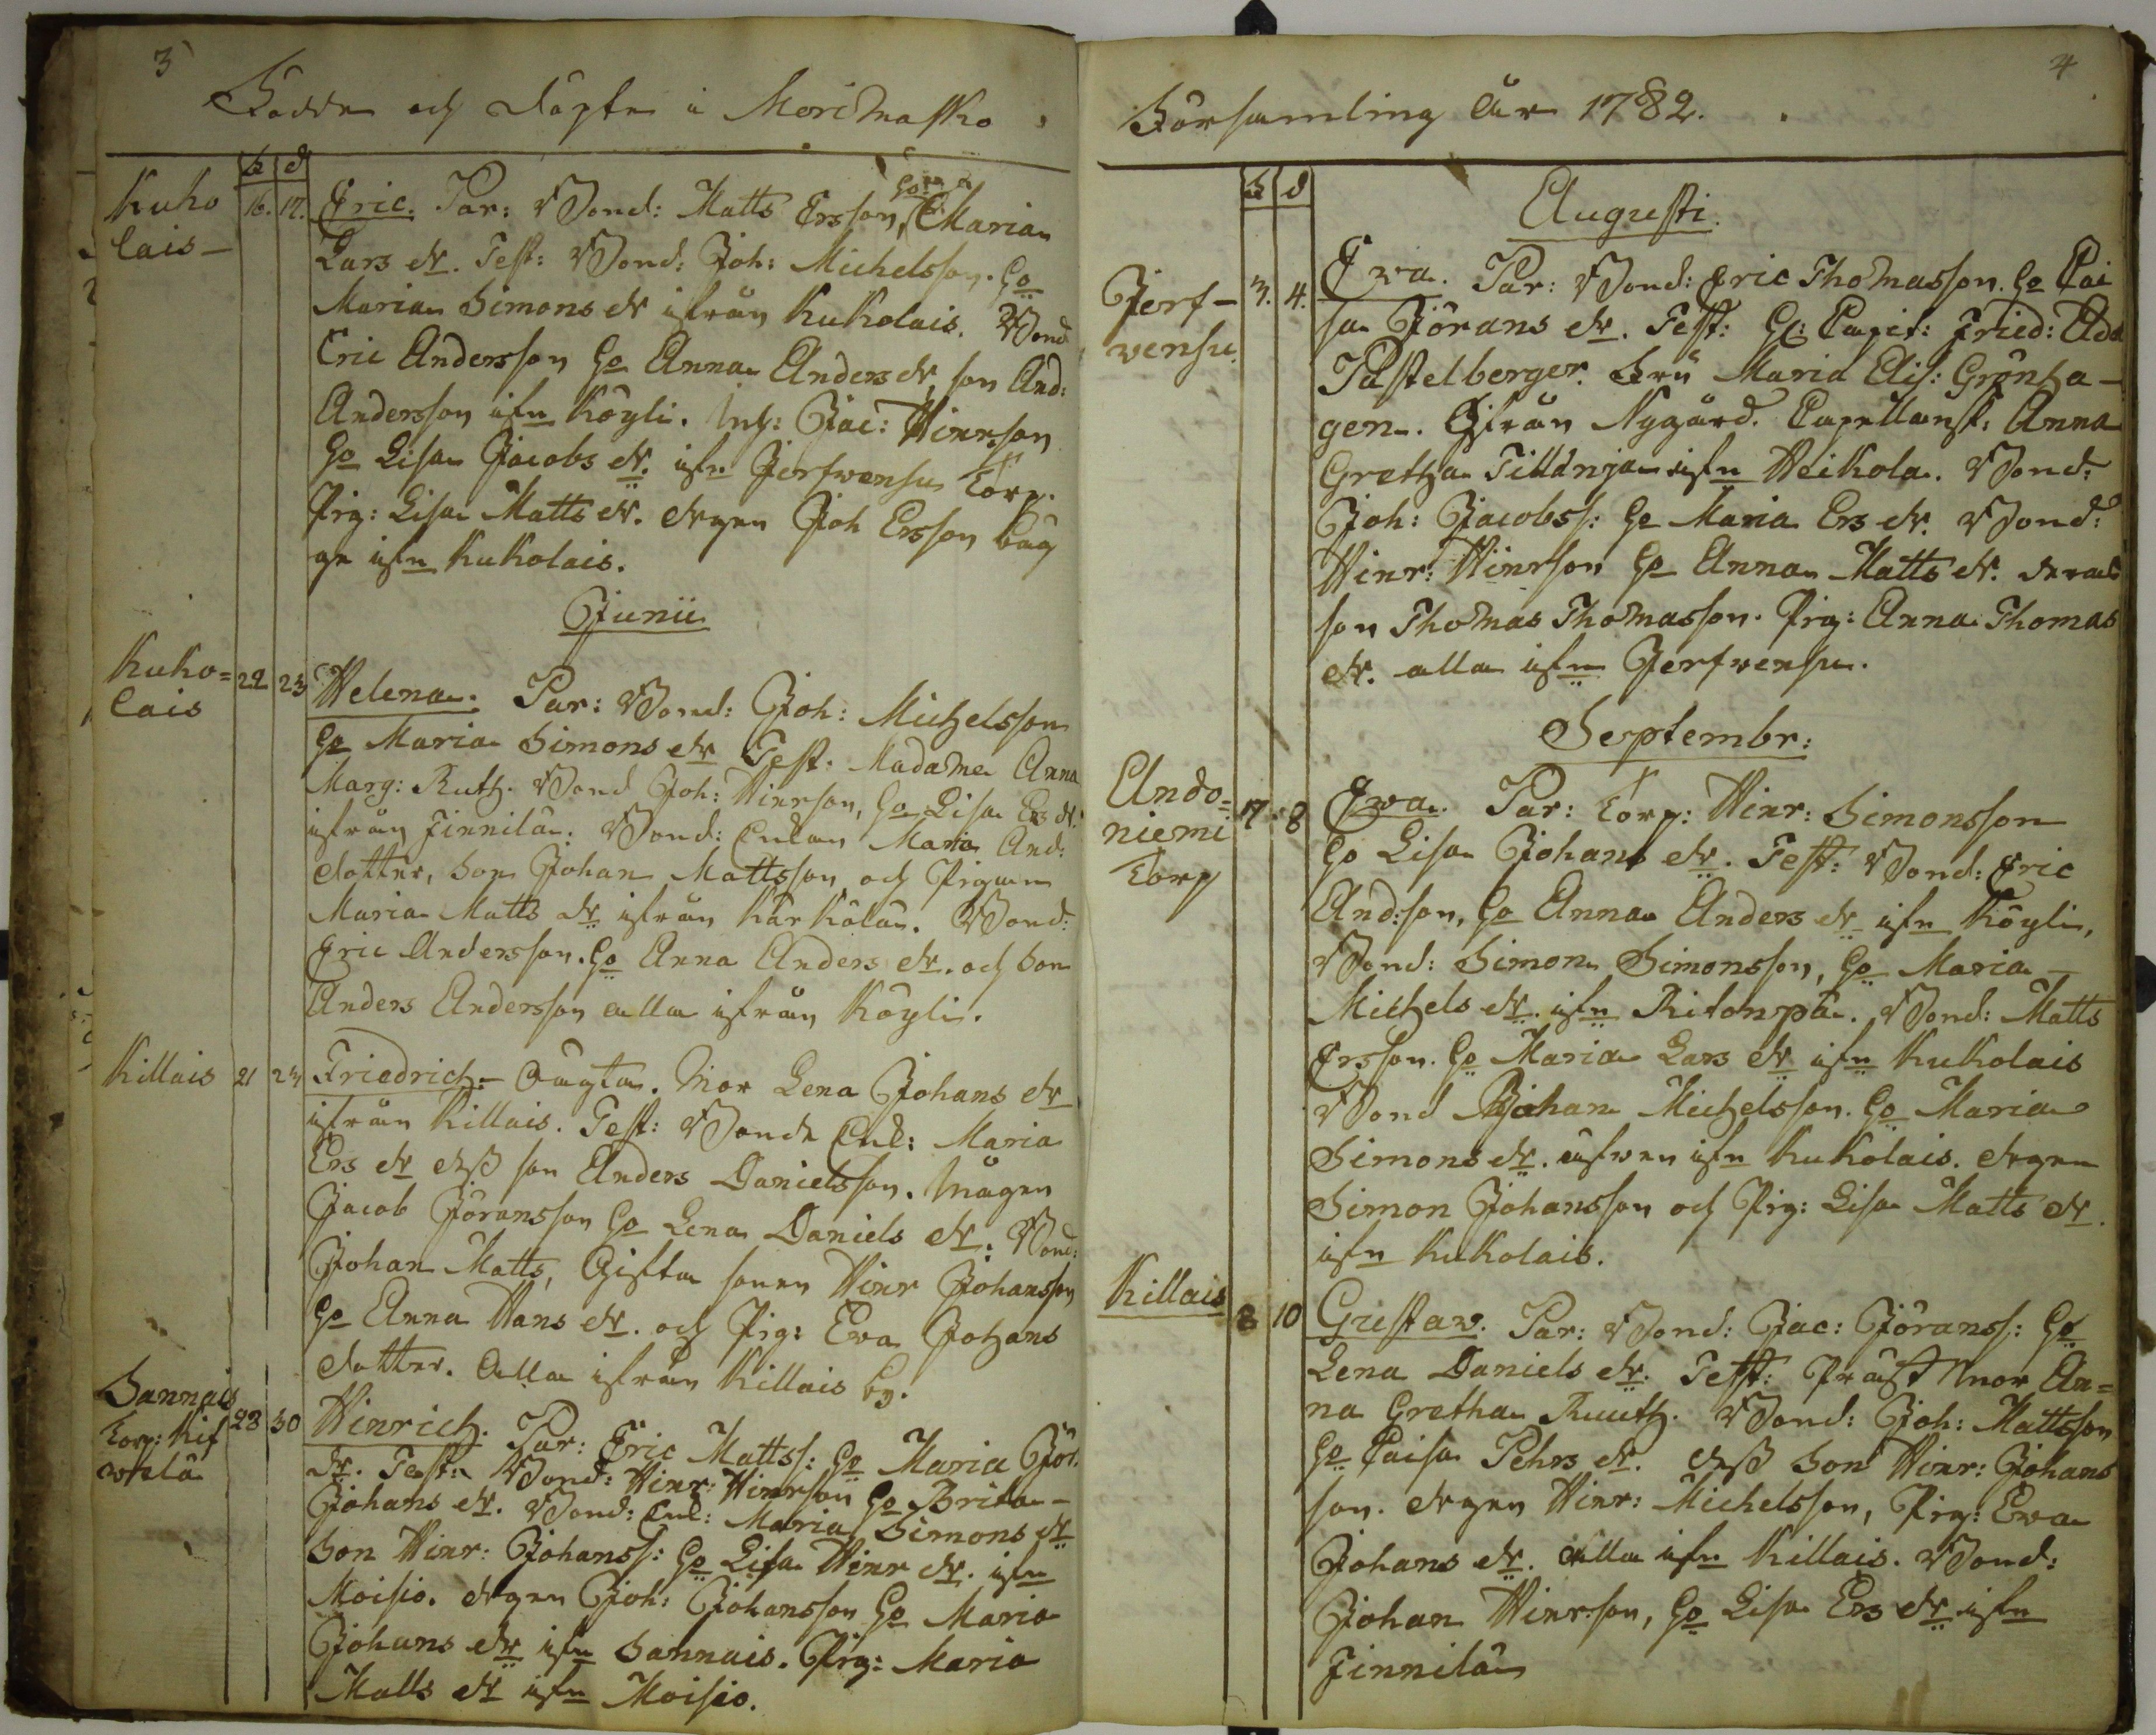 3
Födde och döpte i Mårtnässkog
f d
Kuko
lais
16. 17. Eric. Par: Bond: Matts Ersson, Ho Maria
Lars dr. Test: Bond: Joh: Michelsson. Ho
Maria Simons dr ifrån Kukolais. Bond
Eric Andersson Ho Anna Anders dr, son And:
Andersson ifrn Köyli. Inh: Jac: Hinrson
Ho Lisa Jacobs dr. ifrn Jerfwensu Torp.
Pig: Lisa Matts dr. drgen Joh Ersson bäg
ge ifrn Kukolais.
Junii
Kuko=
lais
22 23 Helena. Par: Bond: Joh: Michelsson
Ho Maria Simons dr Test. Madame Anna
Marg: Ruth. Bond Joh: Hinrson, Ho Lisa Ers dr.
ifrån Finnilä. Bond: Enkan Maria And:
dotter, Son Johan Mattsson och Pigan
Maria Matts dr ifrån Kärkölä. Bond:
Eric Andersson. Ho Anna Anders dr. och Son
Anders Andersson alla ifrån Köyli.
Killais 21 23 Friedrich. Oägta. Mor Lena Johans dr
ifrån Killais. Test: Bonde Enk: Maria
Ers dr dess son Anders Danielsson. Mågen
Jacob Jöransson Ho Lena Daniels dr: Bond:
Johan Matts, Gifta sonen Hinr Johansson
Ho Anna Hans dr. och Pig: Ewa Johans
dotter. Alla ifrån Killais by.
Sannais
Torp: Kif
welä
28 30 Hinrich. Par: Eric Mattss: Ho Maria Jör:
dr. Test: Bond: Hinr: Hinrson Ho Brita
Johans dr. Bond: Enk: Maria Simons dr
Son Hinr: Johanss: Ho Lisa Hinr dr. ifrn
Moisio. drgen Joh: Johansson Ho Maria
Johans dr ifrn Sannais. Pig: Maria
Matts dr ifrn Moisio.
4
Församling År 1782.
f d
Augusti.
Jerf-
wensu.
3. 4. Ewa. Par: Bond: Eric Thomasson. Ho Cai
sa Jörans dr. Test: H: Capit: Fried: Ad:
Pistelberger. Fru Maria Elis: Grönha-
gen. Ifrån Nygård. Capellansk: Anna
Gretha Filldnja ifrn Heikola. Bond:
Joh: Jacobss: Ho Maria Ers dr. Bond:
Hinr: Hinrson Ho Anna Matts dr. deras
son Thomas Thomasson. Pig: Anna Thomas
dr. alla ifrn Jerfwensu.
Septembr:
Ando=
niemi
Torp
17. 8 Ewa. Par: Torp: Hinr: Simonsson
Ho Lisa Johans dr. Test: Bond: Eric
And:son, Ho Anna Anders dr ifrn Köyli,
Bond: Simon Simonsson, Ho Maria
Michels dr. ifrn Ritonpä. Bond: Matts
Ersson. Ho Maria Lars dr ifrn Kukolais
Bond Johan Michelsson. Ho Maria
Simons dr. äfwen ifrn Kukolais. drgen
Simon Johansson och Pig: Lisa Matts dr.
ifrn Kukolais.
Killais
8 10 Gustaw. Par: Bond: Jac: Jöranss: Ho
Lena Daniels dr. Test: Präst mor An=
na Gretha Ruuth. Bond: Joh: Mattsson
Ho Caisa Pehrs dr. dess Son Hinr: Johans
son. drgen Hinr: Michelsson, Pig: Ewa
Johans dr. alla ifrn Killais. Bond:
Johan Hinrson, Ho Lisa Ers dr ifrn
Finnilä